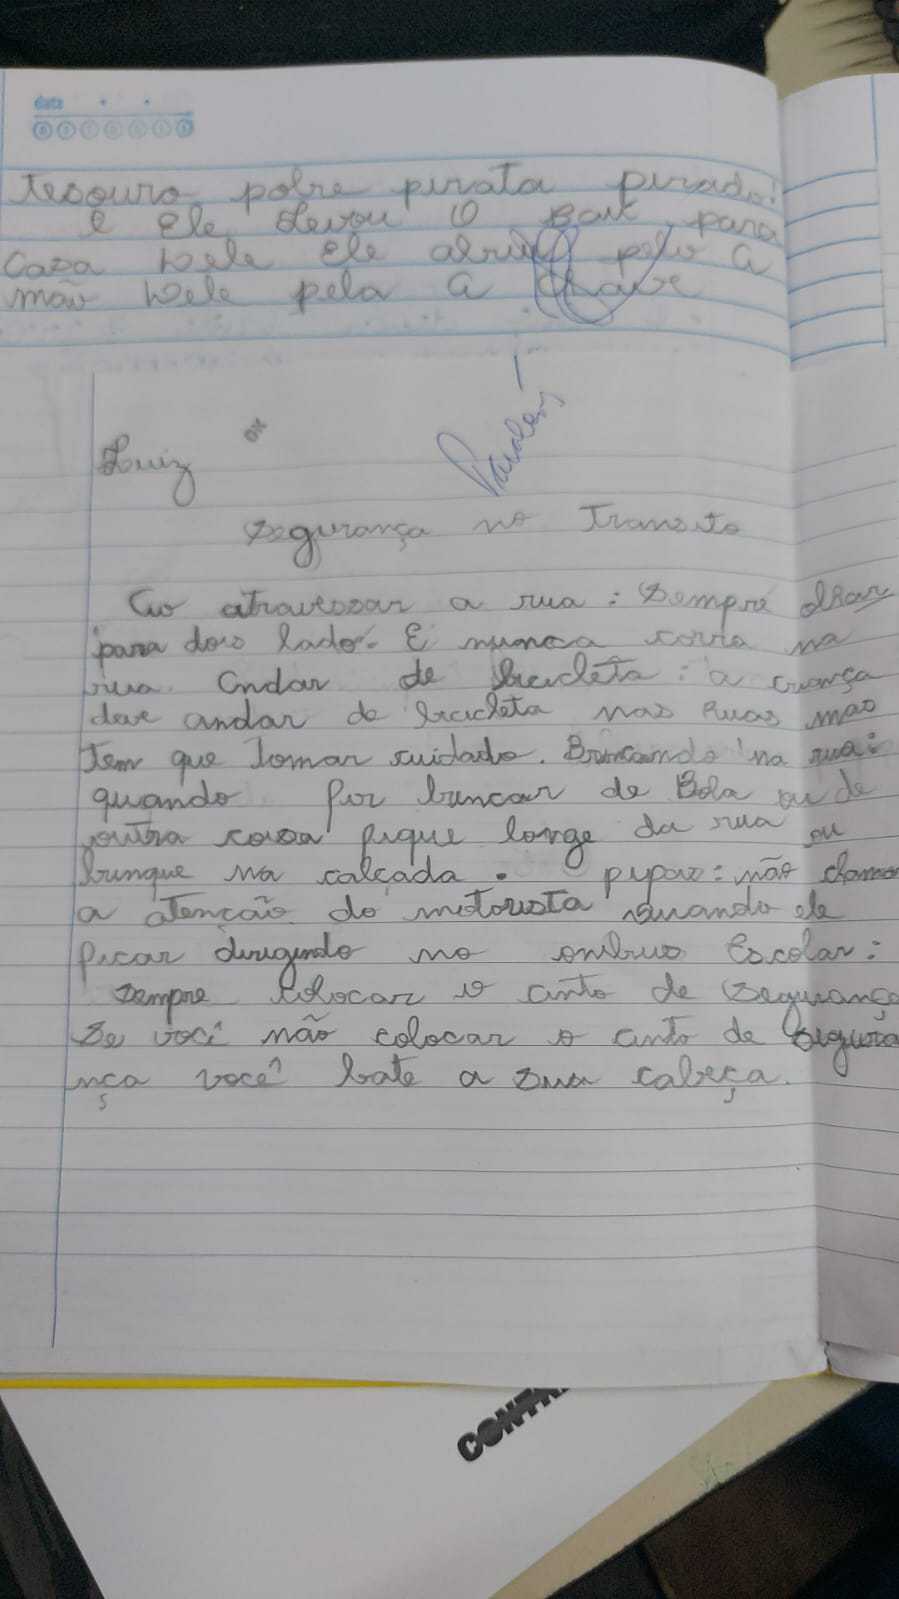 data
Tesouro pobre pirata pirado!
E Ele Levou O Baú para
Casa Dele Ele abriu pelo A
mão Dele pela A chave
Parabéns!
Luiz
OK
Segurança no Transito
Ao atravessar a rua: Sempre olhar
para dois lado. E nunca corra na
rua. Andar de bicicleta: a criança
deve andar de bicicleta nas Ruas mas
Tem que Tomar cuidado. Brincando na rua:
quando for brincar de Bola ou de
outra coisa fique longe da rua ou
brinque na calçada. não chamar
a atenção do motorista quando ele
ficar dirigindo no ombius Escolar:
Sempre colocar o cinto de Segurança
Se você não colocar o cinto de Segura
nça você bate a sua cabeça.